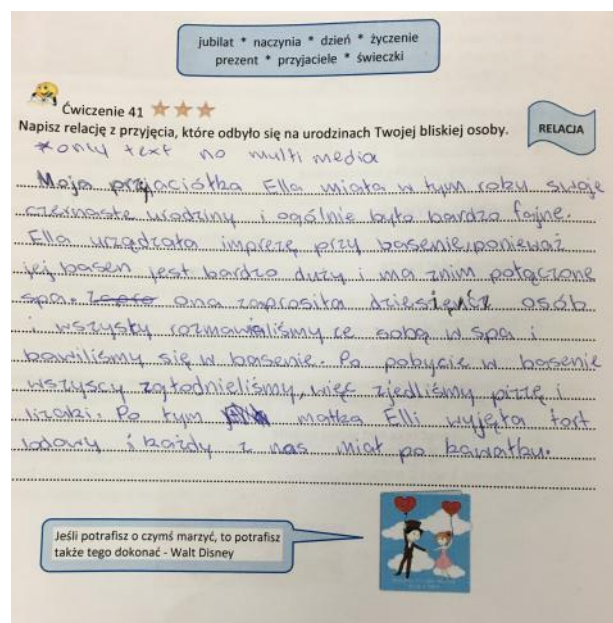 jubilat * naczynia * dzień * życzenie
prezent * przyjaciele * świeczki
Ćwiczenie 41
Napisz relację z przyjęcia, które odbyło się na urodzinach Twojej bliskiej osoby.
RELACJA
*only text no multi media
Moja przyjaciółka Ella miała w tym roku swoje
czternaste urodziny i ogólnie było bardzo fajne.
Ella urządzała imprezę przy basenie, ponieważ
jej basen jest bardzo duży i ma znim połączone
spa. ona zaprosiła dziesięńćź osób
i wszysty rozmawialiśmy ze sobą w spa i
bawiliśmy się w basenie. Po pobycie w basenie
wszyscy zgłodnieliśmy, więc zjedliśmy pizzę i
lizaki. Po tym matka Elli wyjęła tort
lodowy i każdy z nas miał po kawałku.
Jeśli potrafisz o czymś marzyć, to potrafisz
także tego dokonać - Walt Disney